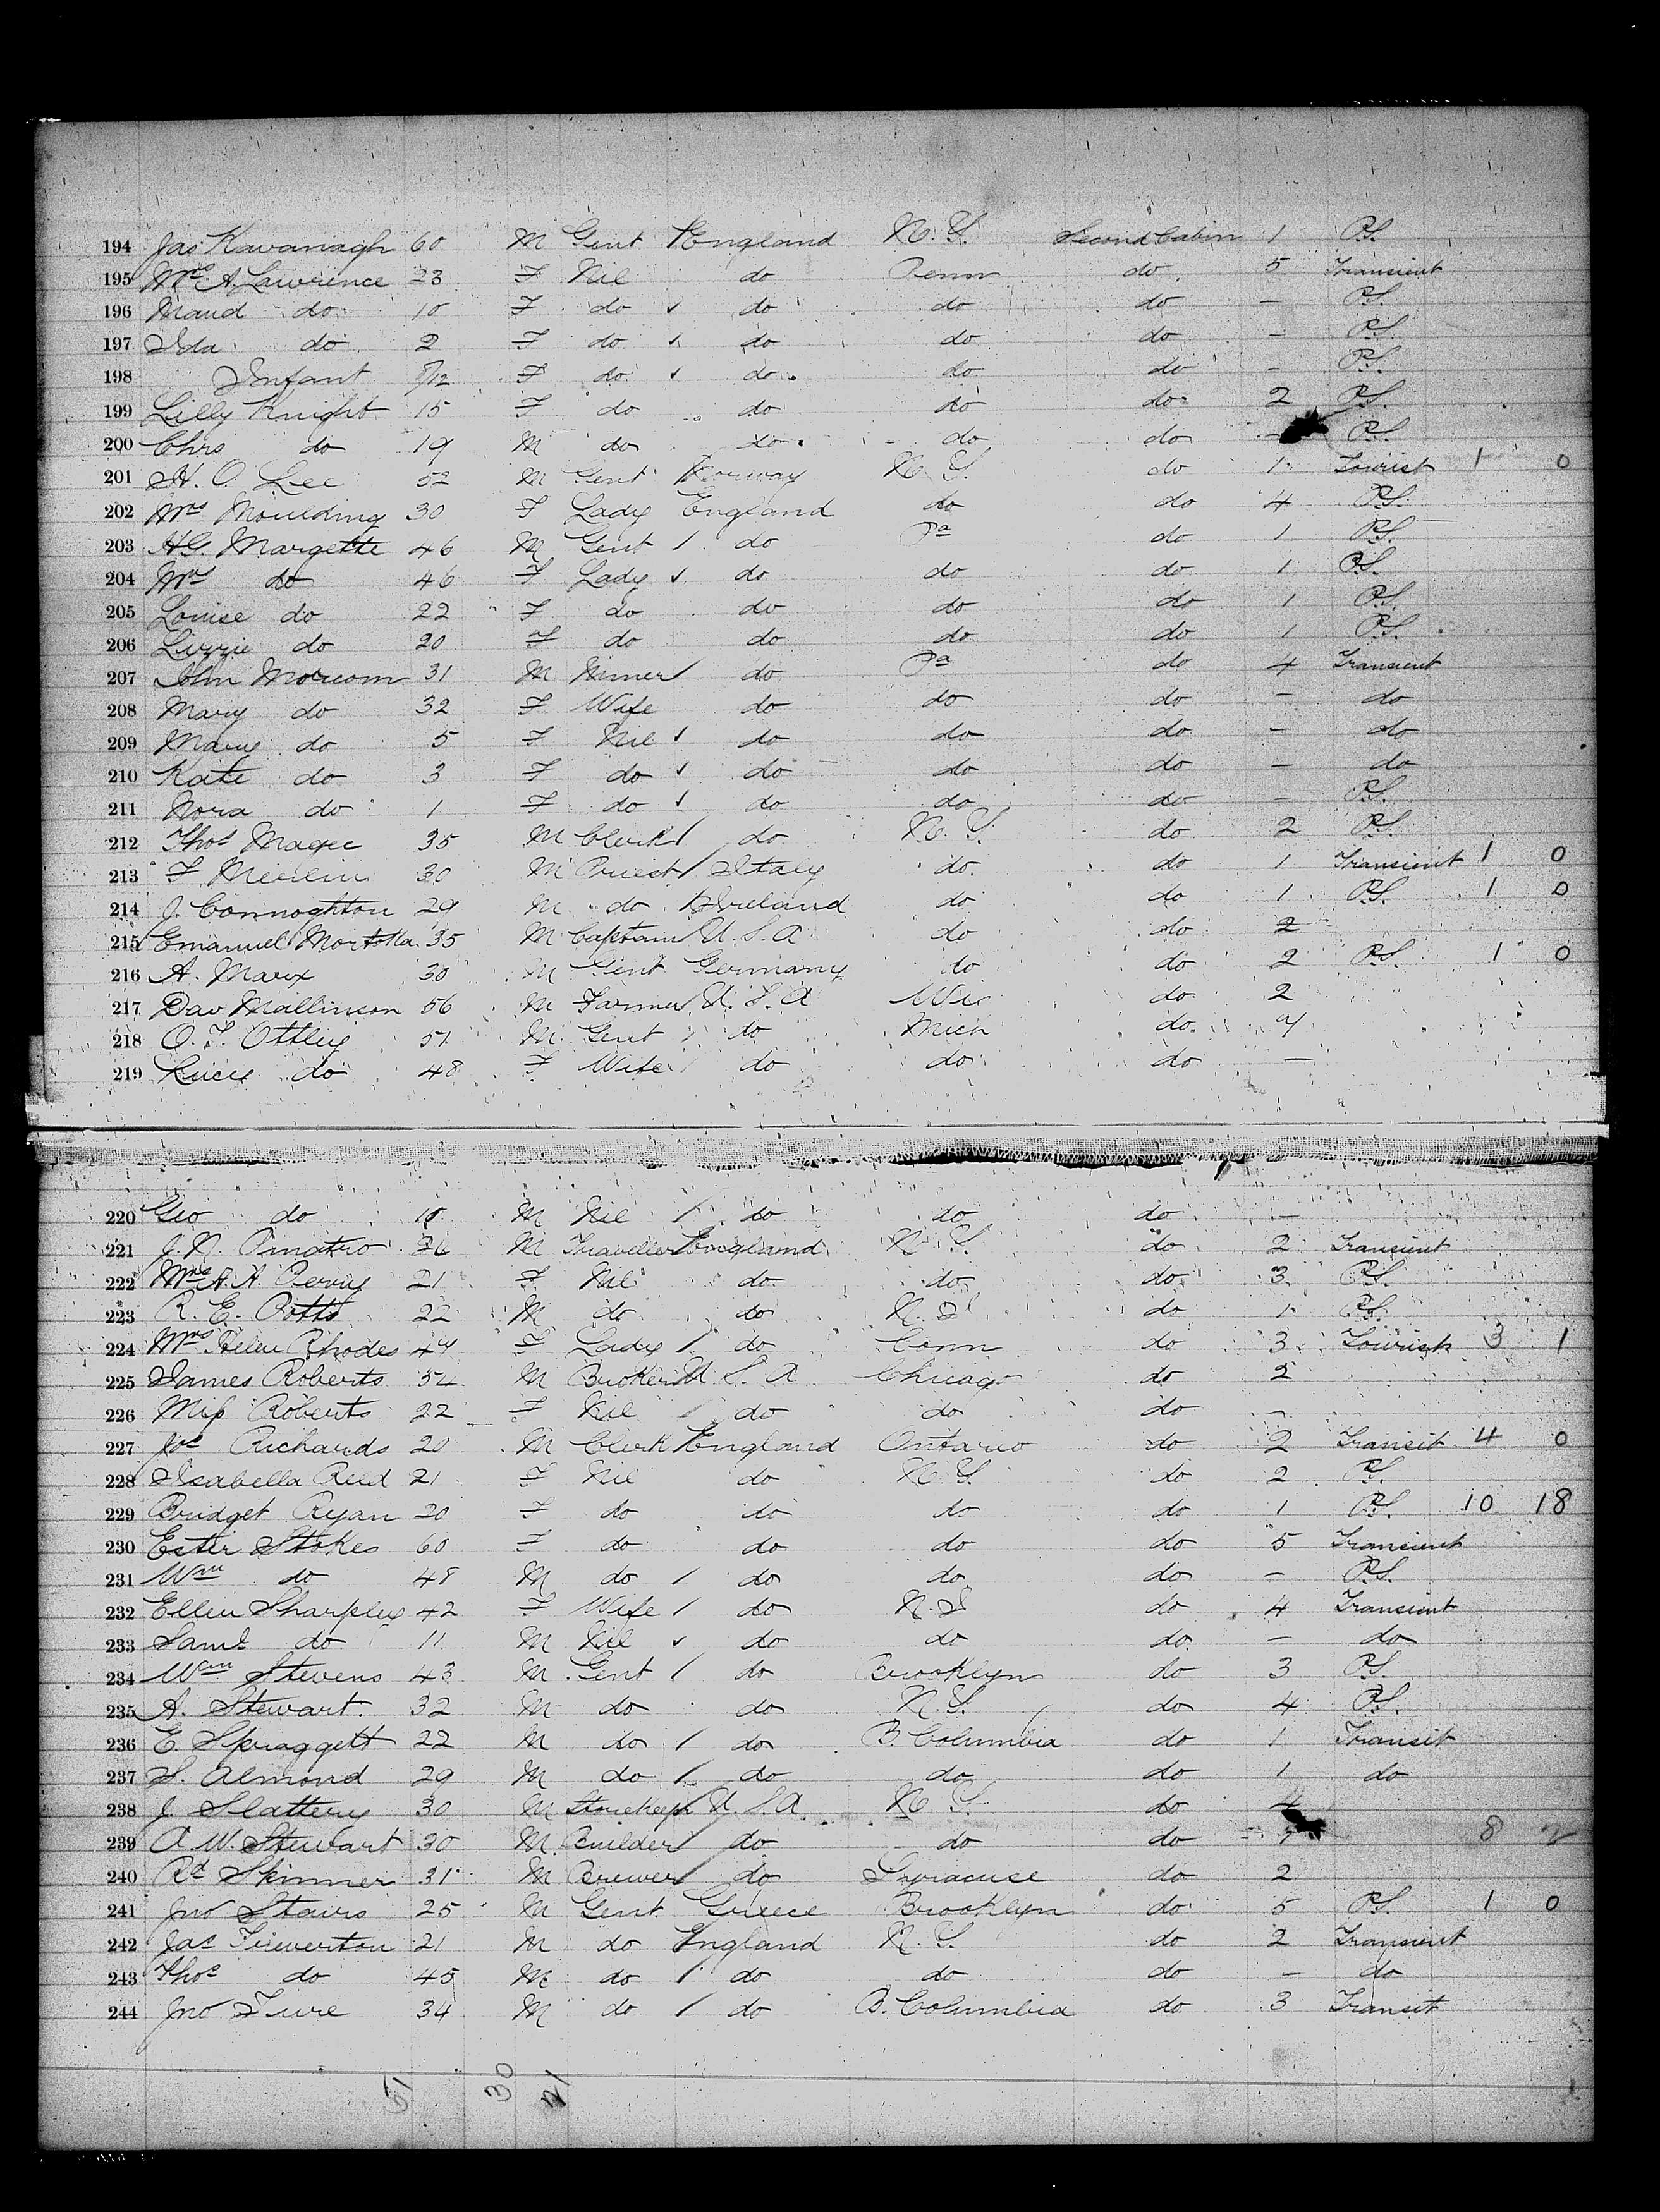 194 Jas Kavanagh 60 M Gent England N. Y. Second Cabin 1 P.S.
195 Mrs A. Lawrence 23 F Nil do Penn do 5 Transient
196 Maud do 10 F do do do do – P.S.
197 Ida do 2 F do do do do – P.S.
198 Infant F do do do do – P.S.
199 Lilly Knight 15 F do do do do 2 P.S.
200 Chrs do 19 M do do do do – P.S.
201 H. O. Lee 52 M Gent Norway N. Y. do 1 Tourist 1 0
202 Mrs Moulding 30 F Lady England do do 4 P.S.
203 HG. Margette 46 M Gent do Pa do 1 P.S.
204 Mrs do 46 F Lady do do do 1 P.S.
205 Louise do 22 F do do do do 1 P.S.
206 Lizzie do 20 F do do do do 1 P.S.
207 John Morcom 31 M Miner do Pa do 4 Transient
208 Mary do 32 F Wife do do do – do
209 Mary do 5 F Nil do do do – do
210 Kate do 3 F do do do do – do
211 Nora do 1 F do do do do – P.S.
212 Thos Magee 35 M Clerk do N. Y. do 2 P.S.
213 F 30 M Priest Italy do do 1 Transient 1 0
214 J. Connoghton 29 M do Ireland do do 1 P.S. 1 0
215 Emanuel 35 M Captain U. S. A do do 2
216 A. Marx 30 M Gent Germany do do 2 P.S. 1 0
217 Dav Mallinson 56 M Farmer U. S. A Wis do 2
218 O. F. Ottley 51 M Gent do Mich do
219 Lucy do 48 F Wife do do do –
220 Geo do M Nil do do do –
221 J. N. M Traveller England N. Y. do 2 Transient
222 Mrs A. A. Perry 21 F Nil do do do 3 P.S.
223 R. E. Potts 22 M do do N. J do 1 P.S.
224 Mrs Helen Rhodes 44 F Lady do Conn do 3 Tourist 3 1
225 James Roberts M Broker U. S. A Chicago do 2
226 Miss Roberts 22 F Nil do do do –
227 Jos Richards 20 M Clerk England Ontario do 2 Transit 4 0
228 Isabella Reed 21 F Nil do N. Y. do 2 P.S.
229 Bridget Ryan 20 F do do do do 1 P.S. 10 18
230 Ester Stokes 60 F do do do do 5 Transient
231 Wm do 48 M do do do do – P.S.
232 Ellen Sharpley 42 F Wife do N. J do 4 Transient
233 Saml do 11 M Nil do do do – do
234 Wm Stevens 43 M Gent do Brooklyn do 3 P.S.
235 A. Stewart 32 M do do N. Y. do 4 P.S.
236 E. Spraggett 22 M do do B. Columbia do 1 Transit
237 S. Almond 29 M do do do do 1 do
238 J. Slattery 30 M Storekeepr U. S. A. N. Y. do 4
239 A. W. Stewart 30 M Builder do do do 8 2
240 Rd Skinner 31 M Brewer do Syracuse do 2
241 Jno Stavrs 25 M Gent Greece Brooklyn do 5 P.S. 1 0
242 Jas Tiverton 21 M do England N. Y. do 2 Transient
243 Thos do 45 M do do do do – do
244 Jno Ture 34 M do do B. Columbia do 3 Transit
51 30 21